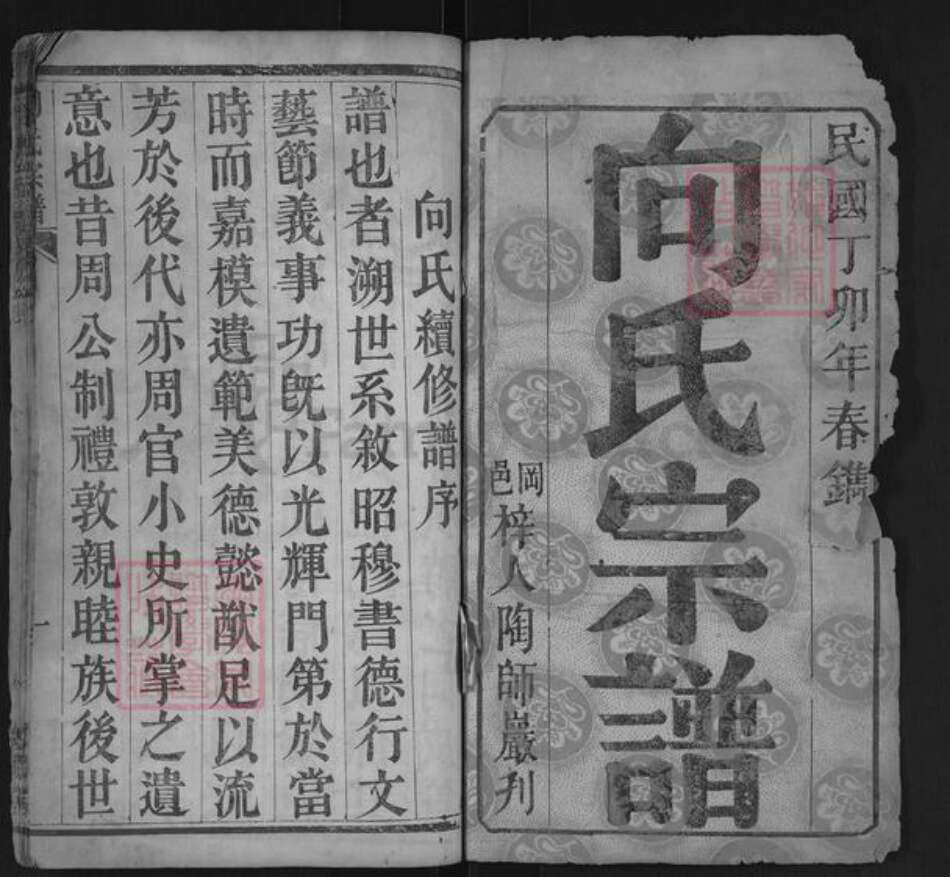 民國丁卯年春鐫
向氏宗譜
岡邑梓人陶師嚴刋
向氏續修譜序
譜也者溯世系敘昭穆書德行文
藝節義事功旣以光輝門第於當
時而嘉模遺範美德懿猷足以流
芳於後代亦周官小史所掌之遺
意也昔周公制禮敦親睦族後世
一